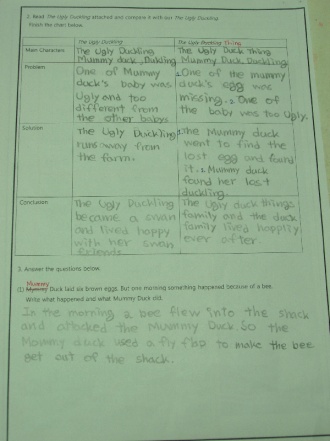 2. Read The Ugly Duckling attached and compare it with our The Ugly Duckling.
Finish the chart below.
The Ugly Duckling
The Ugly Duckling Thing
Main Characters
The Ugly Duckling
Mummy duck, Dukling
The Ugly Duck Thing
Mummy Duck Duckling
Problem
One of Mummy
duck's baby was
Ugly and too
different from
the other babys.
1. One of the mummy
duck's egg was
missing. 2. One of
the baby was too Ugly.
Solution
The Ugly Duckling
runs away from
the farm.
1. The Mummy duck
went to find the
lost egg and found
it. 2. Mummy duck
found her lost
duckling.
Conclusion
The Ugly Duckling
became a swan
and lived happy
with her swan
friends
The Ugly duck things
family and the duck
family lived happily
ever after.
3. Answer the questions below.
Mummy
(1) Mummy Duck laid six brown eggs. But one morning something happened because of a bee.
Write what happened and what Mummy Duck did.
In the morning a bee flew into the shack
and attacked the Mummy Duck So the
Mommy duck used a fly flap to make the bee
get out of the shack.